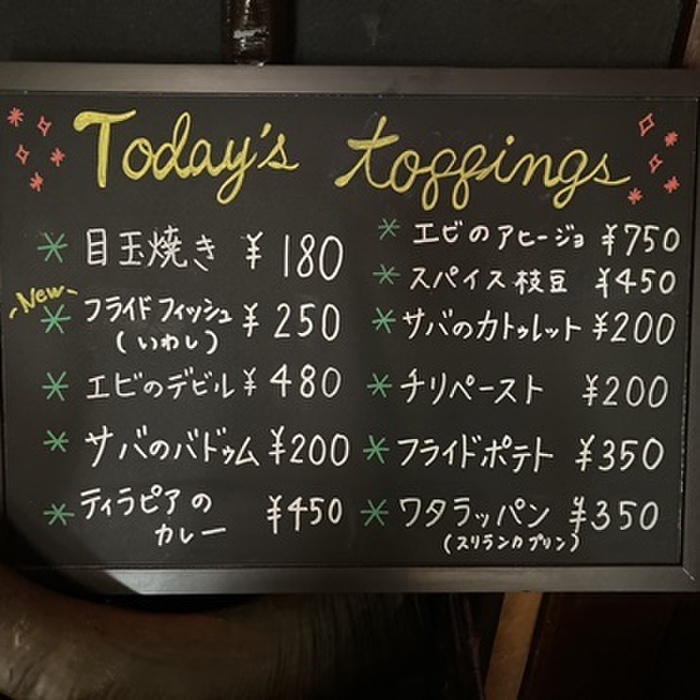 Today's toppings
目玉焼き ¥180
New
フライドフィッシュ ¥250
(いわし)
エビのデビル ¥480
サバのバドゥム ¥200
ティラピアの
カレー ¥450
エビのアヒージョ ¥750
スパイス枝豆 ¥450
サバのカトゥレット ¥200
チリペースト ¥200
フライドポテト ¥350
ワタラッパン ¥350
(スリランカプリン)